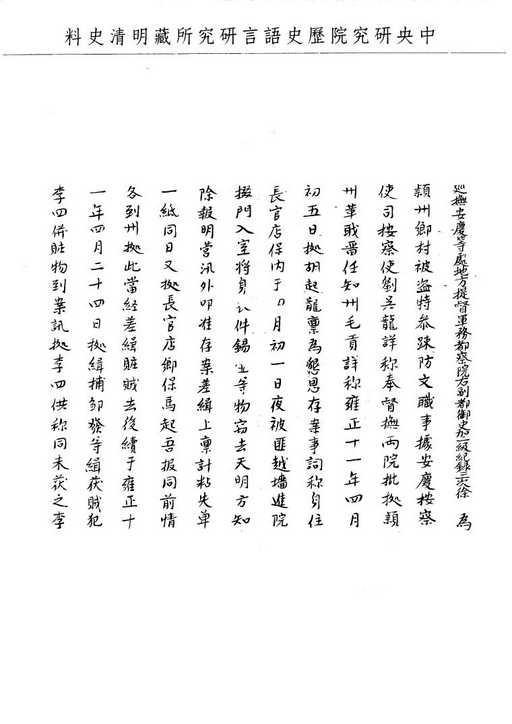 中央研究院歷史語言研究所藏明清史料
巡撫安慶等處地方提督軍務都察院右副都御史加一級紀錄三次徐 為
潁州鄉村被盜特參踈防文職事據安慶按察
使司按察使劉吳龍詳称奉督撫兩院批拠潁
州革職畱任知州毛貢詳称雍正十一年四月
初五日拠胡起龍禀為懇恩存案事詞称身住
長官店保內于月初一日夜被匪越墻進院
掇門入室將身衣件錫等物窃去天明方知
除報明營汛外叩准存案差緝上禀計粘失单
一紙同日又拠長官店鄉保馬起吾报同前情
各到州拠此當経差緝賍賊去後續于雍正十
一年四月二十四日拠緝捕鄒發等緝获賊犯
李四併賍物到案訊拠李四供称同未获之李